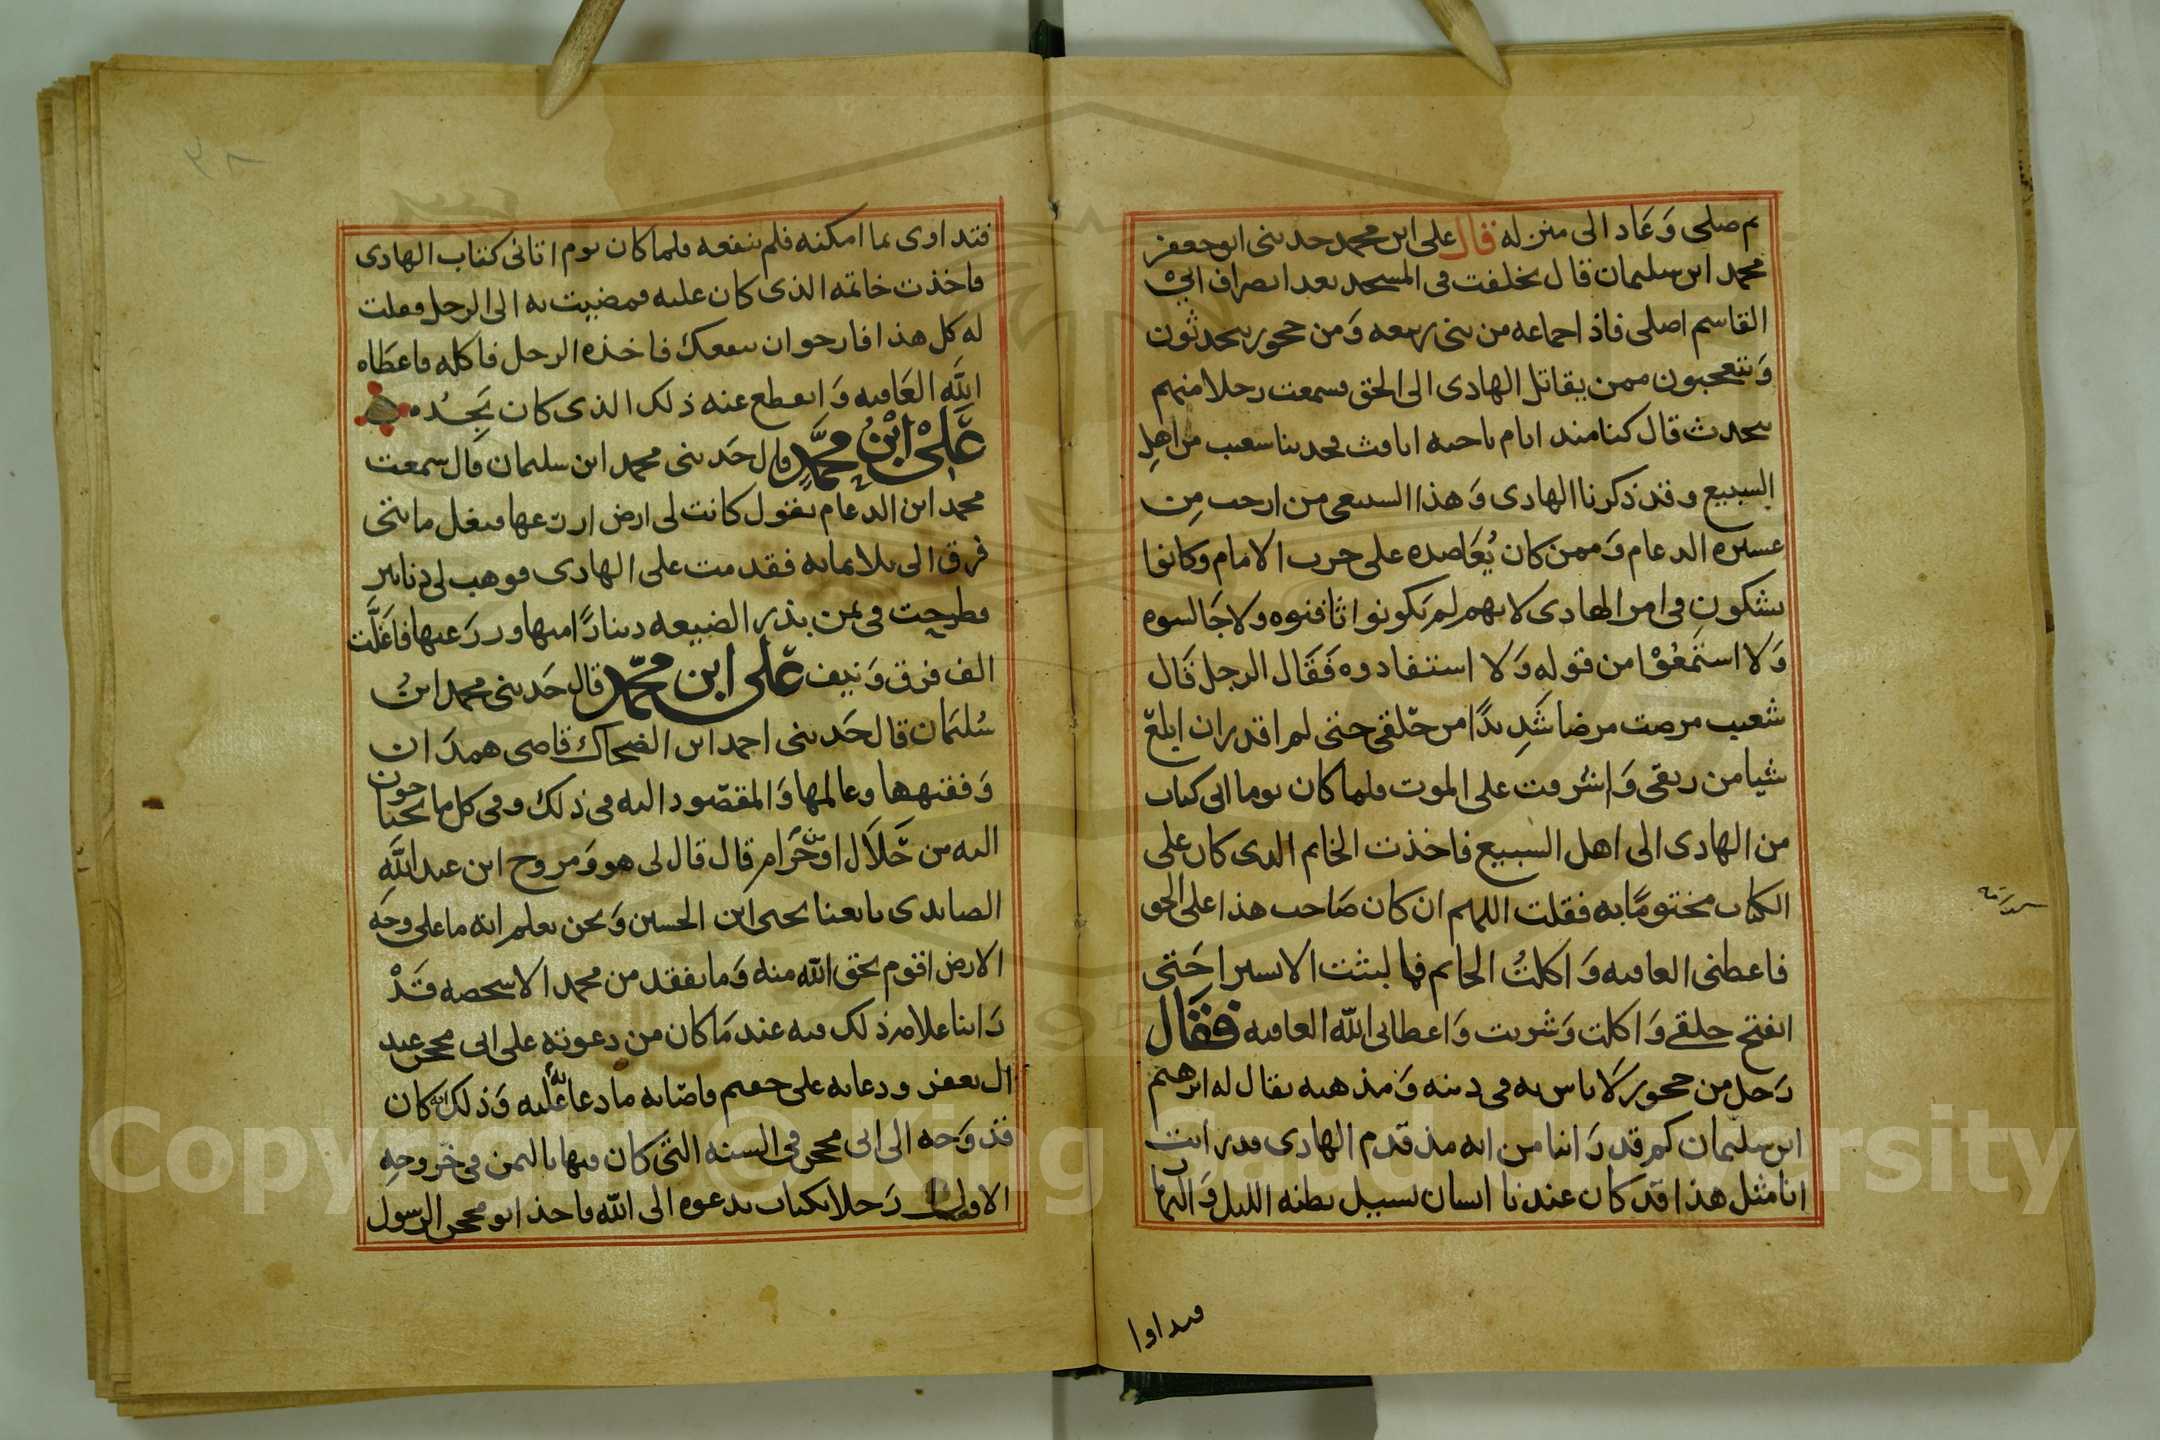 ثم صلى وَعَاد الى منزله قال على ابن محمد حدثنى ابو جعفر
محمد ابن سليمان قال تخلفت فى المسجد بعد انصراف ابي
القاسم اصلى فاذا جماعه من بنى ربيعه وَمن حجور يتحدثون
وَيتعجبون ممن يقاتل الهادى الى الحق فسمعت رجلا منهم
يتحدث قال كنا منذ ايام ناحيه اثافث فحدثنا شعيب من اهل
السبيع وقد ذكرنا الهادى وَهذا السبيعى من ارحب مِن
عشيره الدعام وَممن كان يُعَاضده على حرب الامام وكانوا
يشكون فى امر الهادى لانهم لم يَكونوا اثافنوه ولا جَالسوه
وَلا استَمعُوْا من قوله وَلا استفادوه فَقَال الرجل قَال
شعيب مرضت مرضا شَدِيدًا من حَلقى حتى لم اقدر ان ابلع
شيا من ريقى وَاشرفت على الموت فلما كان يوما اتى كتاب
من الهادى الى اهل السبيع فاخذت الخاتم الذى كان على
الكتاب مختومًا به فقلت اللهم ان كان صَاحب هذا على الحق
فاعطنى العافيه وَاكلتُ الخاتم فما لبثت الا يسيرا حَتى
انفتح حلقي وَاكلت وَشربت وَاعطانى الله العافيه فَقَال
رَجل من حجور لَا باس به فى دينه وَمذهبه يقال له ابرهيم
ابن سليمان كم قد رَاينا من ايه مذ قدم الهادى قد رايت
انا مثل هذا قد كان عندنا انسان تسيل بطنه الليل وَالنهار
فتداوا
فتداوى بما امكنه فلم ينفعه فلما كان يوم اتانى كتاب الهادى
فاخذت خاتمه الذى كان عليه فمضيت به الى الرجل فقلت
له كل هذا فارجوا ان ينفعك فاخذه الرجل فاكله فاعطَاه
اللَّه العَافيه وَانقطع عنه ذلك الذى كان يَجدُه
عَلىْ ابْنُ محمَّدٍ قال حَدثنى محمد ابن سليمان قال سمعت
محمد ابن الدعام يقول كانت لى ارض ازرعها فيغل مايتى
فرق الى ثلاثمايه فقدمت على الهادى فوهب لى دنانير
فطرحت فى ثمن بذر الضيعه دينارًا منها وزرَعتها فاغلَّت
الف فرق وَنيف على ابن محمّد قال حَدثنى محمد ابنُ
سُليمَان قال حَدثنى احمد ابن الضحاك قاضى همدَان
وَفقيهها وعالمها وَالمقصُود اليه فى ذلك وفى كل ما يحتاجون
اليه من حَلَال اوْ حَرَام قال قال لى هو وَمروح ابن عبد اللَّهِ
الصايدى بايعنا يحيى ابن الحسين وَنحن نعلم انه ما على وجه
الارض اقوم بحق الله منه وَما نفقد من محمد الا شخصه قَدْ
رَاينا علامة ذلك فيه عند مَا كان من دعوته على ابى محجن عبد
ال يعفر ودعايه على جعيم فاصَابه ما دعا اللَّه عليه وَذلك انه كان
قد وَجه الى ابى محجن فى السنه التى كان فيها باليمن فى خروجه
الاولى رَجلا بكتاب يدعوه الى الله فاخذ ابو محجن الرسول